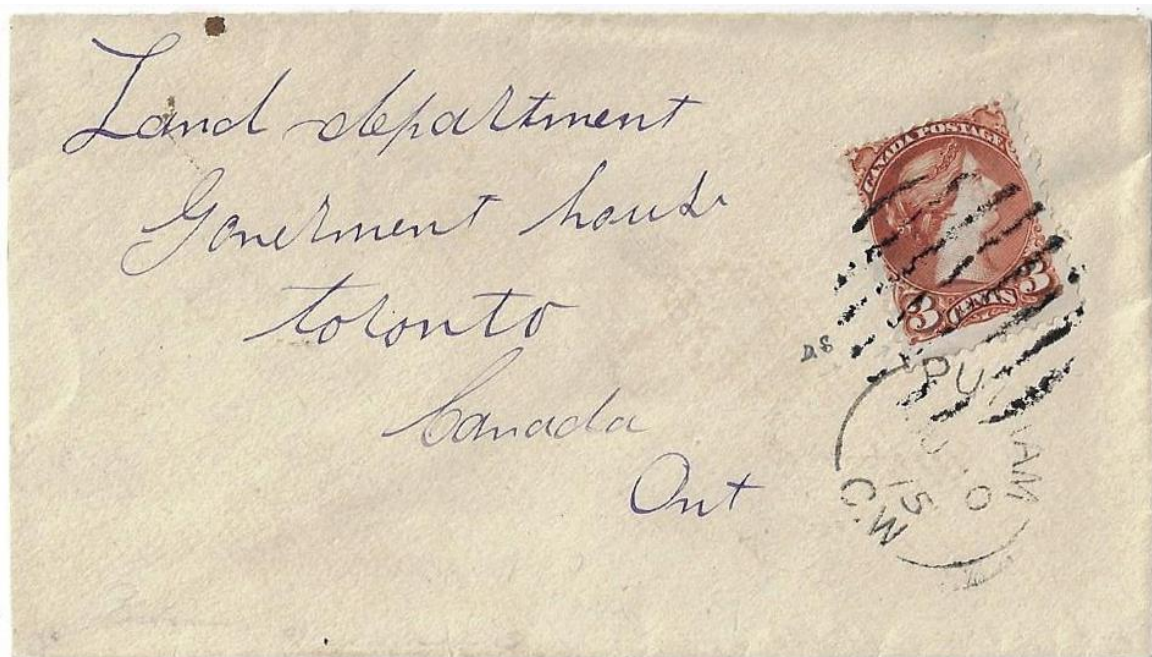 Land department
Goverment house
toronto
Canada
Ont
CANADA POSTAGE
3 CENTS 3
C.W